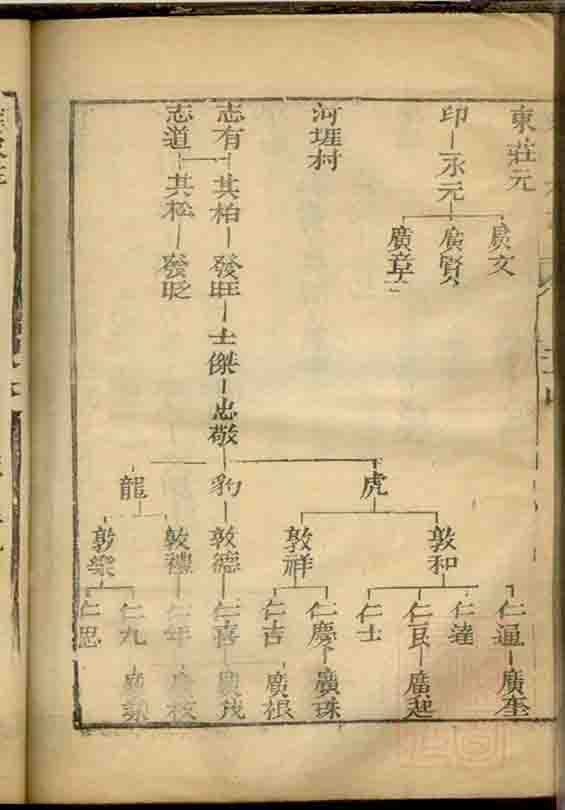 東莊元
印
永元
廣文
廣賢
廣章
河堐村
志有
其柏
發旺
士傑
忠敬
志道
其松
發旺
虎
豹
龍
敦和
敦祥
敦德
敦禮
敦樂
仁通
仁達
仁良
仁士
仁慶
仁吉
仁喜
仁年
仁九
仁思
廣奎
廣起
廣珠
廣根
廣茂
廣枝